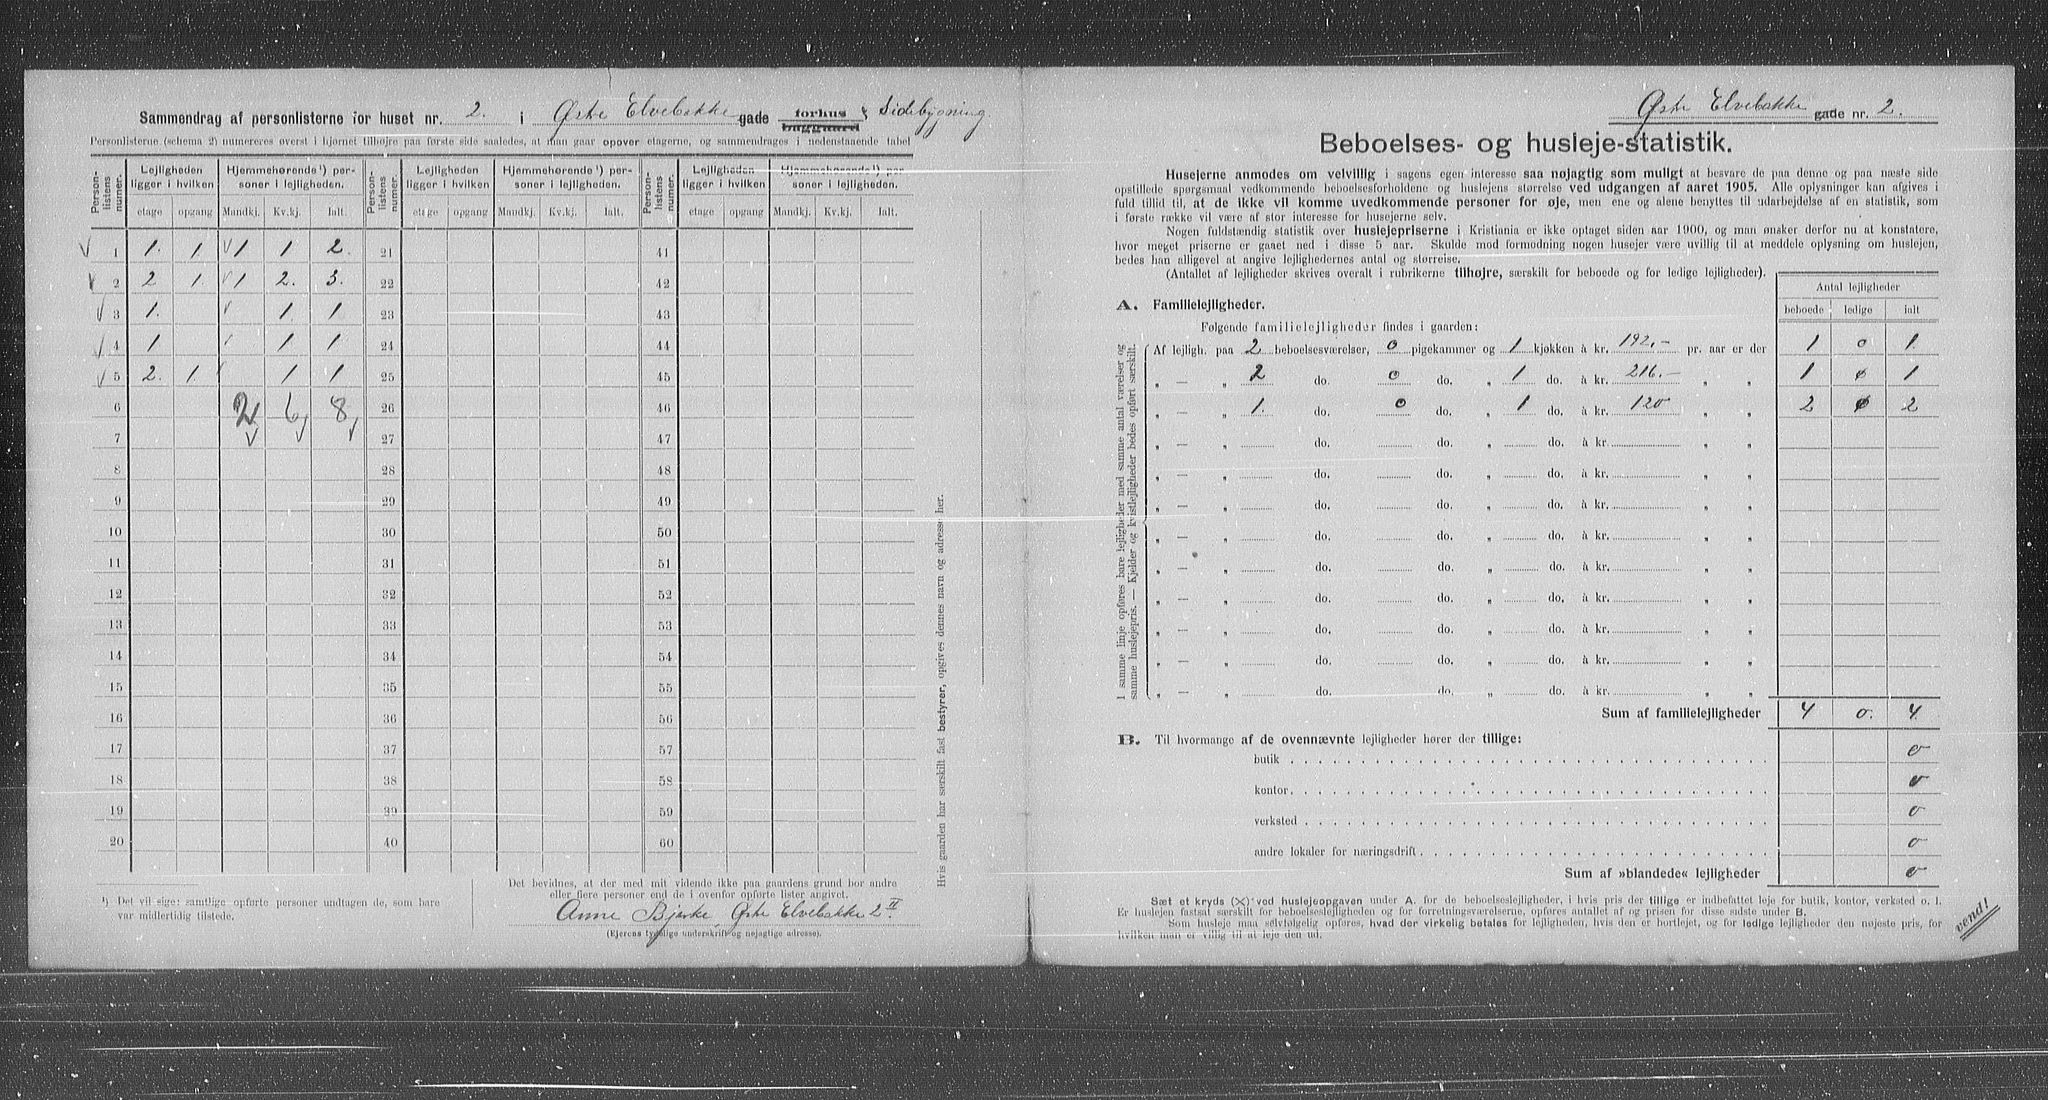 Sammendrag af personlisterne for huset nr. 2. i Østre Elvebakke gade forhus & Sidebygning
baggaard
Personlisterne (schema 2) numereres øverst i hjørnet tilhøjre paa første side saaledes, at man gaar opover etagerne, og sammendrages i nedenstaaende tabel
Person-listens nummer. | Lejligheden ligger i hvilken | Hjemmehørende¹) personer i lejligheden. | Person-listens nummer. | Lejligheden ligger i hvilken | Hjemmehørende¹) personer i lejligheden. | Person-listens nummer. | Lejligheden ligger i hvilken | Hjemmehørende¹) personer i lejligheden.
etage opgang Mandkj. Kv.kj. Ialt. etage opgang Mandkj. Kv.kj. Ialt. etage opgang Mandkj. Kv.kj. Ialt.
√ 1 1. 1 √1 1 2. 21 41
√ 2 2 1. √1 2. 3. 22 42
√ 3 1. √ 1. 1 23 43
√ 4 1 √ 1 1 24 44
√ 5 2. 1. √ 1 1 25 45
6 2 6 8 26 46
7 √ √ √ 27 47
8 28 48
9 29 49
10 30 50
11 31 51
12 32 52
13 33 53
14 34 54
15 35 55
16 36 56
17 37 57
18 38 58
19 39 59
20 40 60
¹) Det vil sige: samtlige opførte personer undtagen de, som bare
var midlertidig tilstede.
Det bevidnes, at der med mit vidende ikke paa gaardens grund bor andre
eller flere personer end de i ovenfor opførte lister angivet.
Anne Bjerke, Østre Elvebakke 2 II
(Ejerens tydelige underskrift og nøjagtige adresse).
Hvis gaarden har særskilt fast bestyrer, opgives dennes navn og adresse her.
Østre Elvebakke gade nr. 2.
Beboelses- og husleje-statistik.
Husejerne anmodes om velvillig i sagens egen interesse saa nøjagtig som muligt at besvare de paa denne og paa næste side
opstillede spørgsmaal vedkommende beboelsesforholdene og huslejens størrelse ved udgangen af aaret 1905. Alle oplysninger kan afgives i
fuld tillid til, at de ikke vil komme uvedkommende personer for øje, men ene og alene benyttes til udarbejdelse af en statistik, som
i første række vil være af stor interesse for husejerne selv.
Nogen fuldstændig statistik over huslejepriserne i Kristiania er ikke optaget siden aar 1900, og man ønsker derfor nu at konstatere,
hvor meget priserne er gaaet ned i disse 5 aar. Skulde mod formodning nogen husejer være uvillig til at meddele oplysning om huslejen,
bedes han alligevel at angive lejlighedernes antal og størrelse.
(Antallet af lejligheder skrives overalt i rubrikerne tilhøjre, særskilt for beboede og for ledige lejligheder).
Antal lejligheder
beboede ledige ialt
A. Familielejligheder.
Følgende familielejligheder findes i gaarden:
Af lejligh. paa 2 beboelsesværelser, 0 pigekammer og 1 kjøkken à kr. 192,- pr. aar er der 1 0 1.
„ — „ 2 do. 0 do. „ 1 do. à kr. 216.- „ „ 1 0 1
„ — „ 1. do. 0 do. „ 1 do. à kr. 120 „ „ 2 0 2
„ — „ do. do. „ do. à kr. „ „
„ — „ do. do. „ do. à kr. „ „
„ — „ do. do. „ do. à kr. „ „
„ — „ do. do. „ do. à kr. „ „
„ — „ do. do. „ do. à kr. „ „
„ — „ do. do. „ do. à kr. „ „
„ — „ do. do. „ do. à kr. „ „
„ — „ do. do. „ do. à kr. „ „
„ — „ do. do. „ do. à kr. „ „
I samme linje opføres bare lejligheder med samme antal værelser og
samme huslejepris. — Kjelder og kvistlejligheder bedes opført særskilt.
Sum af familielejligheder 4 0. 4.
B. Til hvormange af de ovennævnte lejligheder hører der tillige:
butik 0
kontor 0
verksted 0
andre lokaler for næringsdrift 0
Sum af »blandede« lejligheder 0
Sæt et kryds (X) ved huslejeopgaven under A. for de beboelseslejligheder, i hvis pris der tillige er indbefattet leje for butik, kontor, verksted o. l.
Er huslejen fastsat særskilt for beboelseslejligheden og for forretningsværelserne, opføres antallet af og prisen for disse sidste under B.
Som husleje maa selvfølgelig opføres, hvad der virkelig betales for lejligheden, hvis den er bortlejet, og for ledige lejligheder den nøjeste pris, for
hvilken man er villig til at leje den ud.
vend!